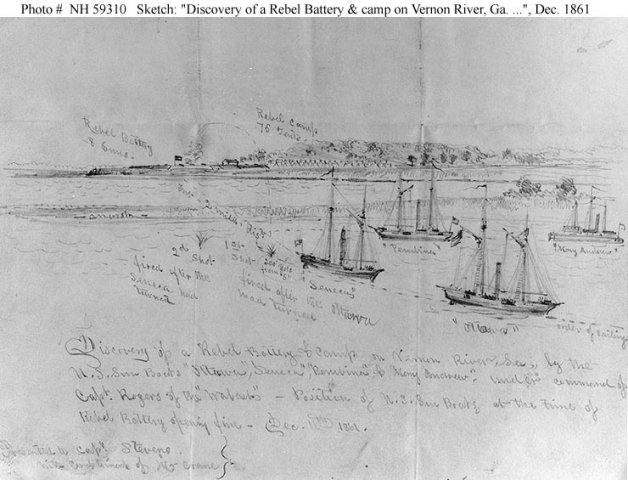 Photo # NH 59310 Sketch: "Discovery of a Rebel Battery & camp on Vernon River, Ga. ...", Dec. 1861
Rebel Camp
75 Tents
Rebel Battery
8 Guns
2 miles
2d Shot
fired after the
Seneca had
turned
1st
Shot
fired after the Ottawa
had turned
"Seneca"
"Pembina"
"Mary Andrew"
"Ottawa"
order of sailing
Discovery of a Rebel Battery & Camp, on Vernon River, Geo, by the
U.S. Gun Boats "Ottawa, Seneca, "Pembina" & "Mary Andrew". Under command of
Capt. Rogers of the "Wabash" – Position of U.S. Gun Boats at the time of
Rebel Battery opening fire – Dec. 1861.
Presented to Capt. Stevens.
with compliments of Mr Crane